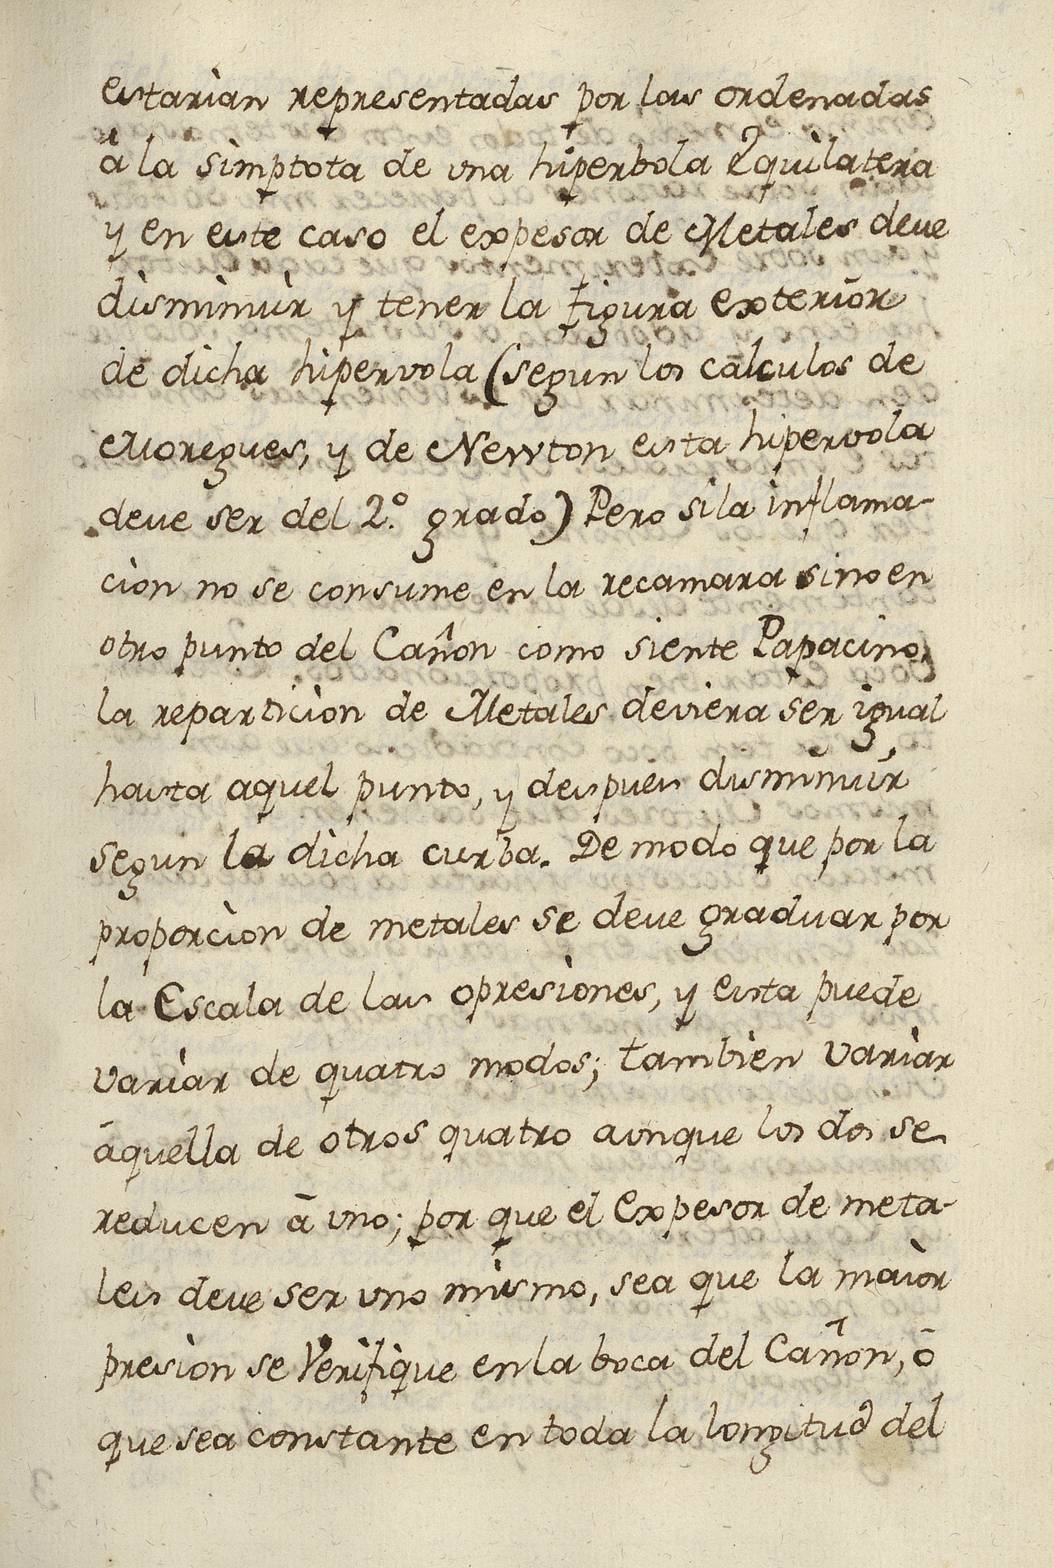 estarian representadas por las ordenadas
â la simptota de una hiperbola Equilatera
y en este caso el expesor de Metales deve
disminuir y tener la figura exterior
de dicha hipervola (segun los calculos de
Moregues, y de Newton esta hipervola
deve ser del 2.º grado) Pero si la inflama-
cion no se consume en la recamara sino en
otro punto del Cañon como siente Papacino,
la reparticion de Metales deviera ser igual
hasta aquel punto, y despues disminuir
segun la dicha curba. De modo que por la
proporcion de metales se deve graduar por
la Escala de las opresiones, y esta puede
variar de quatro modos; tambien variar
āquella de otros quatro aunque los dos se
reducen ā uno; por que el Expesor de meta-
les deve ser uno mismo, sea que la maior
presion se Verifique en la boca del Cañon, ō
que sea constante en toda la longitud del